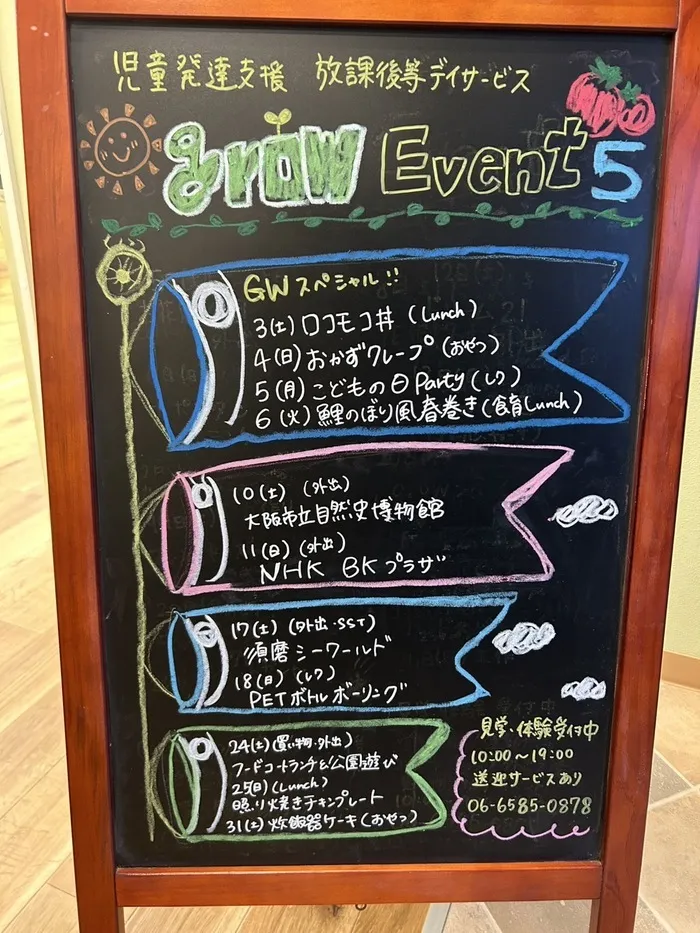 児童発達支援 放課後等デイサービス
grow Event 5
GWスペシャル!!
3(土)ロコモコ丼(Lunch)
4(日)おかずクレープ(おやつ)
5(月)こどもの日Party(レク)
6(火)鯉のぼり風春巻き(食育Lunch)
10(土)(外出)
大阪市立自然史博物館
11(日)(外出)
NHK BKプラザ
17(土)(外出・SST)
須磨シーワールド
18(日)(レク)
PETボトルボーリング
24(土)(買い物・外出)
フードコートランチ&公園遊び
25(日)(Lunch)
照り焼きチキンプレート
31(土)炊飯器ケーキ(おやつ)
見学・体験受付中
10:00~19:00
送迎サービスあり
06-6585-0878